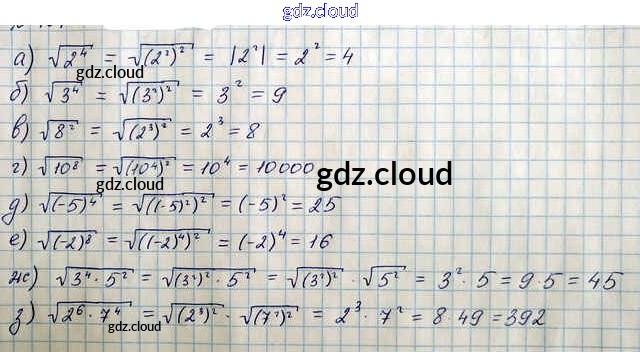 gdz.cloud
а) √2⁴ = √(2²)² = |2²| = 2² = 4
gdz.cloud
б) √3⁴ = √(3²)² = 3² = 9
в) √8² = √(2³)² = 2³ = 8
г) √10⁸ = √(10⁴)² = 10⁴ = 10000
gdz.cloud
gdz.cloud
д) √(-5)⁴ = √((-5)²)² = (-5)² = 25
е) √(-2)⁸ = √((-2)⁴)² = (-2)⁴ = 16
ж) √3⁴·5² = √(3²)²·5² = √(3²)² · √5² = 3²·5 = 9·5 = 45
з) √2⁶·7⁴ = √(2³)² · √(7²)² = 2³·7² = 8·49 = 392
gdz.cloud
gdz.cloud